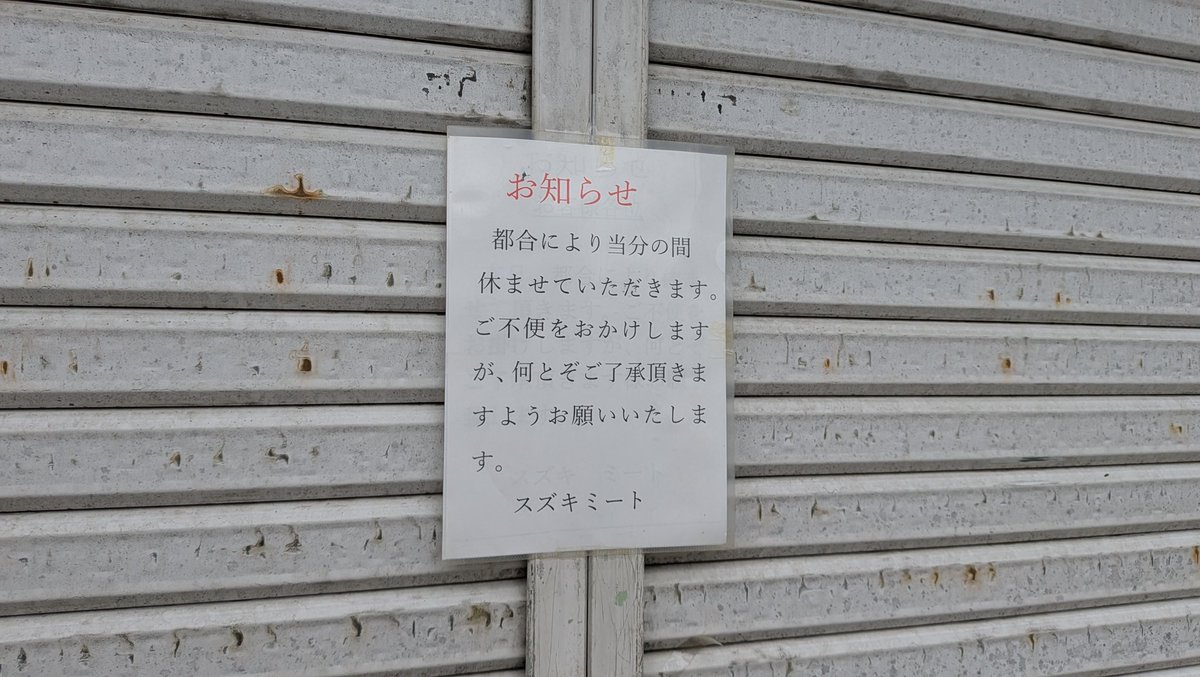 お知らせ
都合により当分の間
休ませていただきます。
ご不便をおかけします
が、何とぞご了承頂きま
すようお願いいたしま
す。
スズキミート